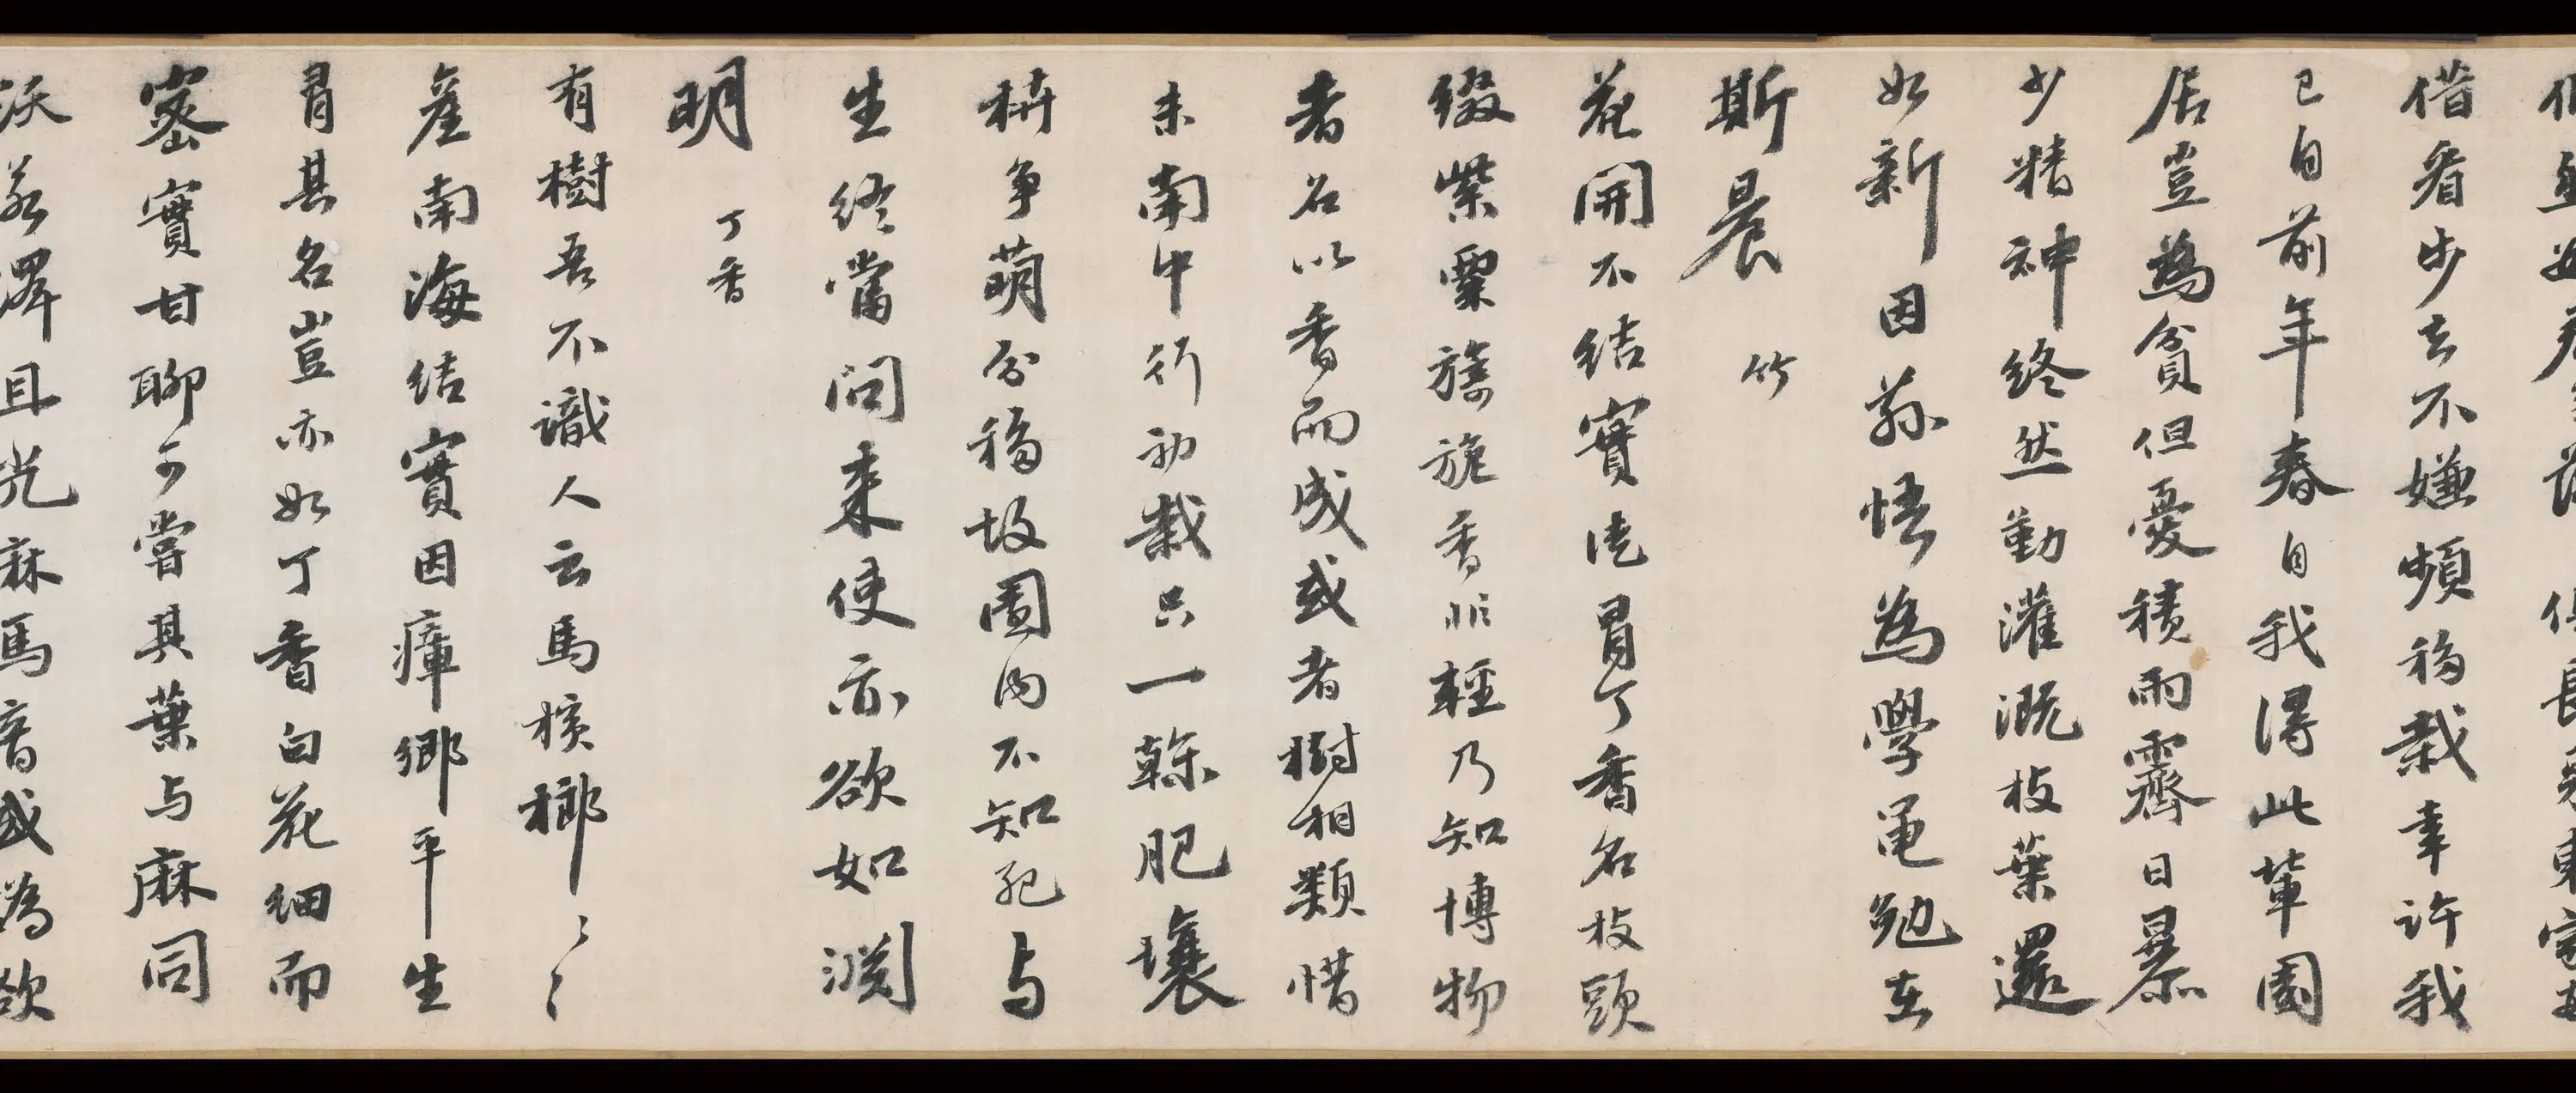 借看步去不嫌頻移栽幸許我
已自前年春自我得此輩園
居豈為貧但憂積雨霽日暴
少精神終然勤灌溉枝葉還
如新因荪悟為學黽勉在
斯晨 竹
花開不結實徒冒丁香名枝頭
綴紫粟旖旎香非輕乃知博物
者名以香而成或者樹相類惜
未南中行初栽只一榦肥壤
栟争萌分移故園内不知死与
生終當問来使亦欲如淵
明 丁香
有樹吾不識人云馬檳榔〻〻
産南海結實因瘴鄉平生
冐其名豈亦如丁香白花細而
密實甘聊可嘗其葉与麻同
沃若澤且光麻馬音或為欲